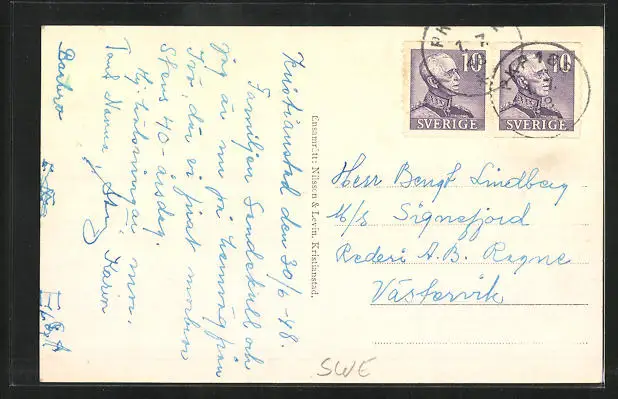 Kristianstad den 30/6-48.
Familjen Sandekull och
jag är nu på hemväg från
Ivö, där vi firat morbror
Stens 40-årsdag.
Hj. hälsningar
Tant Karin
Ensamrätt: Nilsson & Levin, Kristianstad.
10
SVERIGE
10
SVERIGE
Herr Bengt Lindberg
M/s Signefjord
Rederi A.B. Ragne
Västervik
SWE